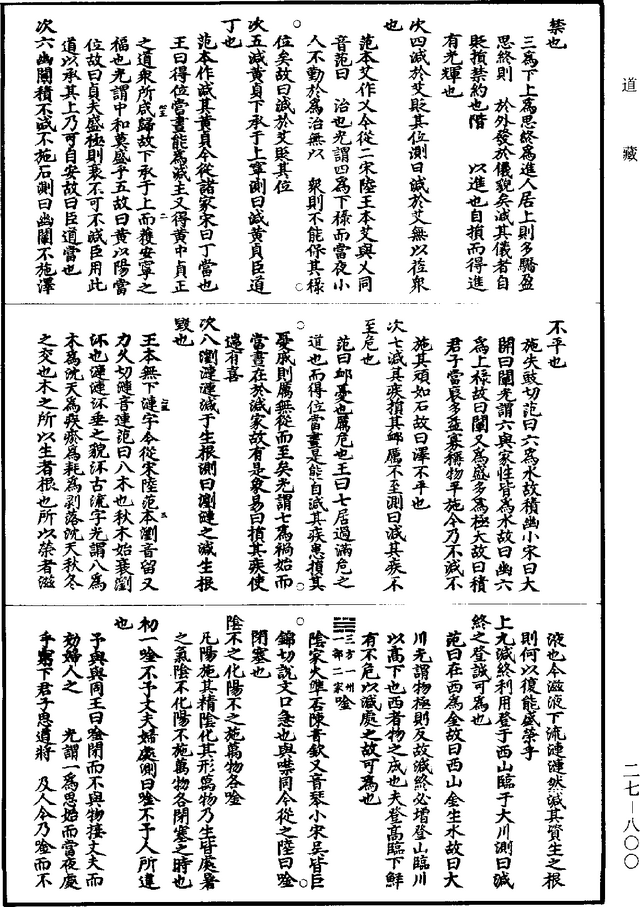 道藏
二七—八〇〇
禁也
三為下上為思終為進人居上則多驕盈
思終則　於外發於儀貌矣減其儀者自
貶損禁約也階　以進也自損而得進
有光輝也
次四減於艾貶其位測曰減於艾無以蒞衆
也
范本艾作乂今從二宋陸王本艾與乂同
音范曰　治也光謂四為下祿而當夜小
人不勤於為治無以　衆則不能保其祿
位矣故曰減於艾貶其位
次五減黃貞下承于上寧測曰減黃貞臣道
丁也
范本作減其黃貞今從諸家宋曰丁當也
王曰得位當晝能為減主又得黃中貞正
之道衆所咸歸故下承于上而獲安寧之
福也光謂中和莫盛乎五故曰黃以陽當
位故曰貞夫盛極則衰不可不減臣用此
道以承其上乃可自安故曰臣道當也
次六幽闡積不減不施石測曰幽闡不施澤
不平也
施失豉切范曰六為水故積幽小宋曰大
開曰闡光謂六與家性皆為水故曰幽六
為上祿故曰闡又為盛多為極大故曰積
君子當裒多益寡稱物平施今乃不減不
施其頑如石故曰澤不平也
次七減其疾損其卹厲不至測曰減其疾不
至危也
范曰卹憂也厲危也王曰七居過滿危之
道也而得位當晝是能自減其疾患損其
憂戚則厲無從而至矣光謂七為禍始而
當晝在於減家故有是象易曰損其疾使
遄有喜
次八瀏漣漣減于生根測曰瀏漣之減生根
毀也
王本無下漣字今從宋陸范本瀏音留又
力久切漣音連范曰八木也秋木始衰瀏
㳅也漣漣㳅垂之貌㳅古流字光謂八為
木為沈天為疾瘀為耗為剥落沈天秋冬
之交也木之所以生者根也所以榮者滋
液也今滋液下流漣漣然減其質生之根
則何以復能盛榮乎
上九減終利用登于西山臨于大川測曰減
終之登誠可為也
范曰在西為金故曰西山金生水故曰大
川光謂物極則反故減終必增登山臨川
以高下也西者物之成也夫登高臨下鮮
有不危以減處之故可為也
三方一州一部二家唫
陰家火準否陳音欽又音琴小宋吳皆巨
錦切説文口急也與噤同今從之陸曰唫
閉塞也
陰不之化陽不之施萬物各唫
凡陽施其精陰化其形萬物乃生皆處暑
之氣陰不化陽不施萬物各閉塞之時也
初一唫不予丈夫婦處測曰唫不予人所違
也
予與與同王曰唫閉而不與物接丈夫而
効婦人之　光謂一為思始而當夜處
乎窮下君子思道將　及人今乃唫而不